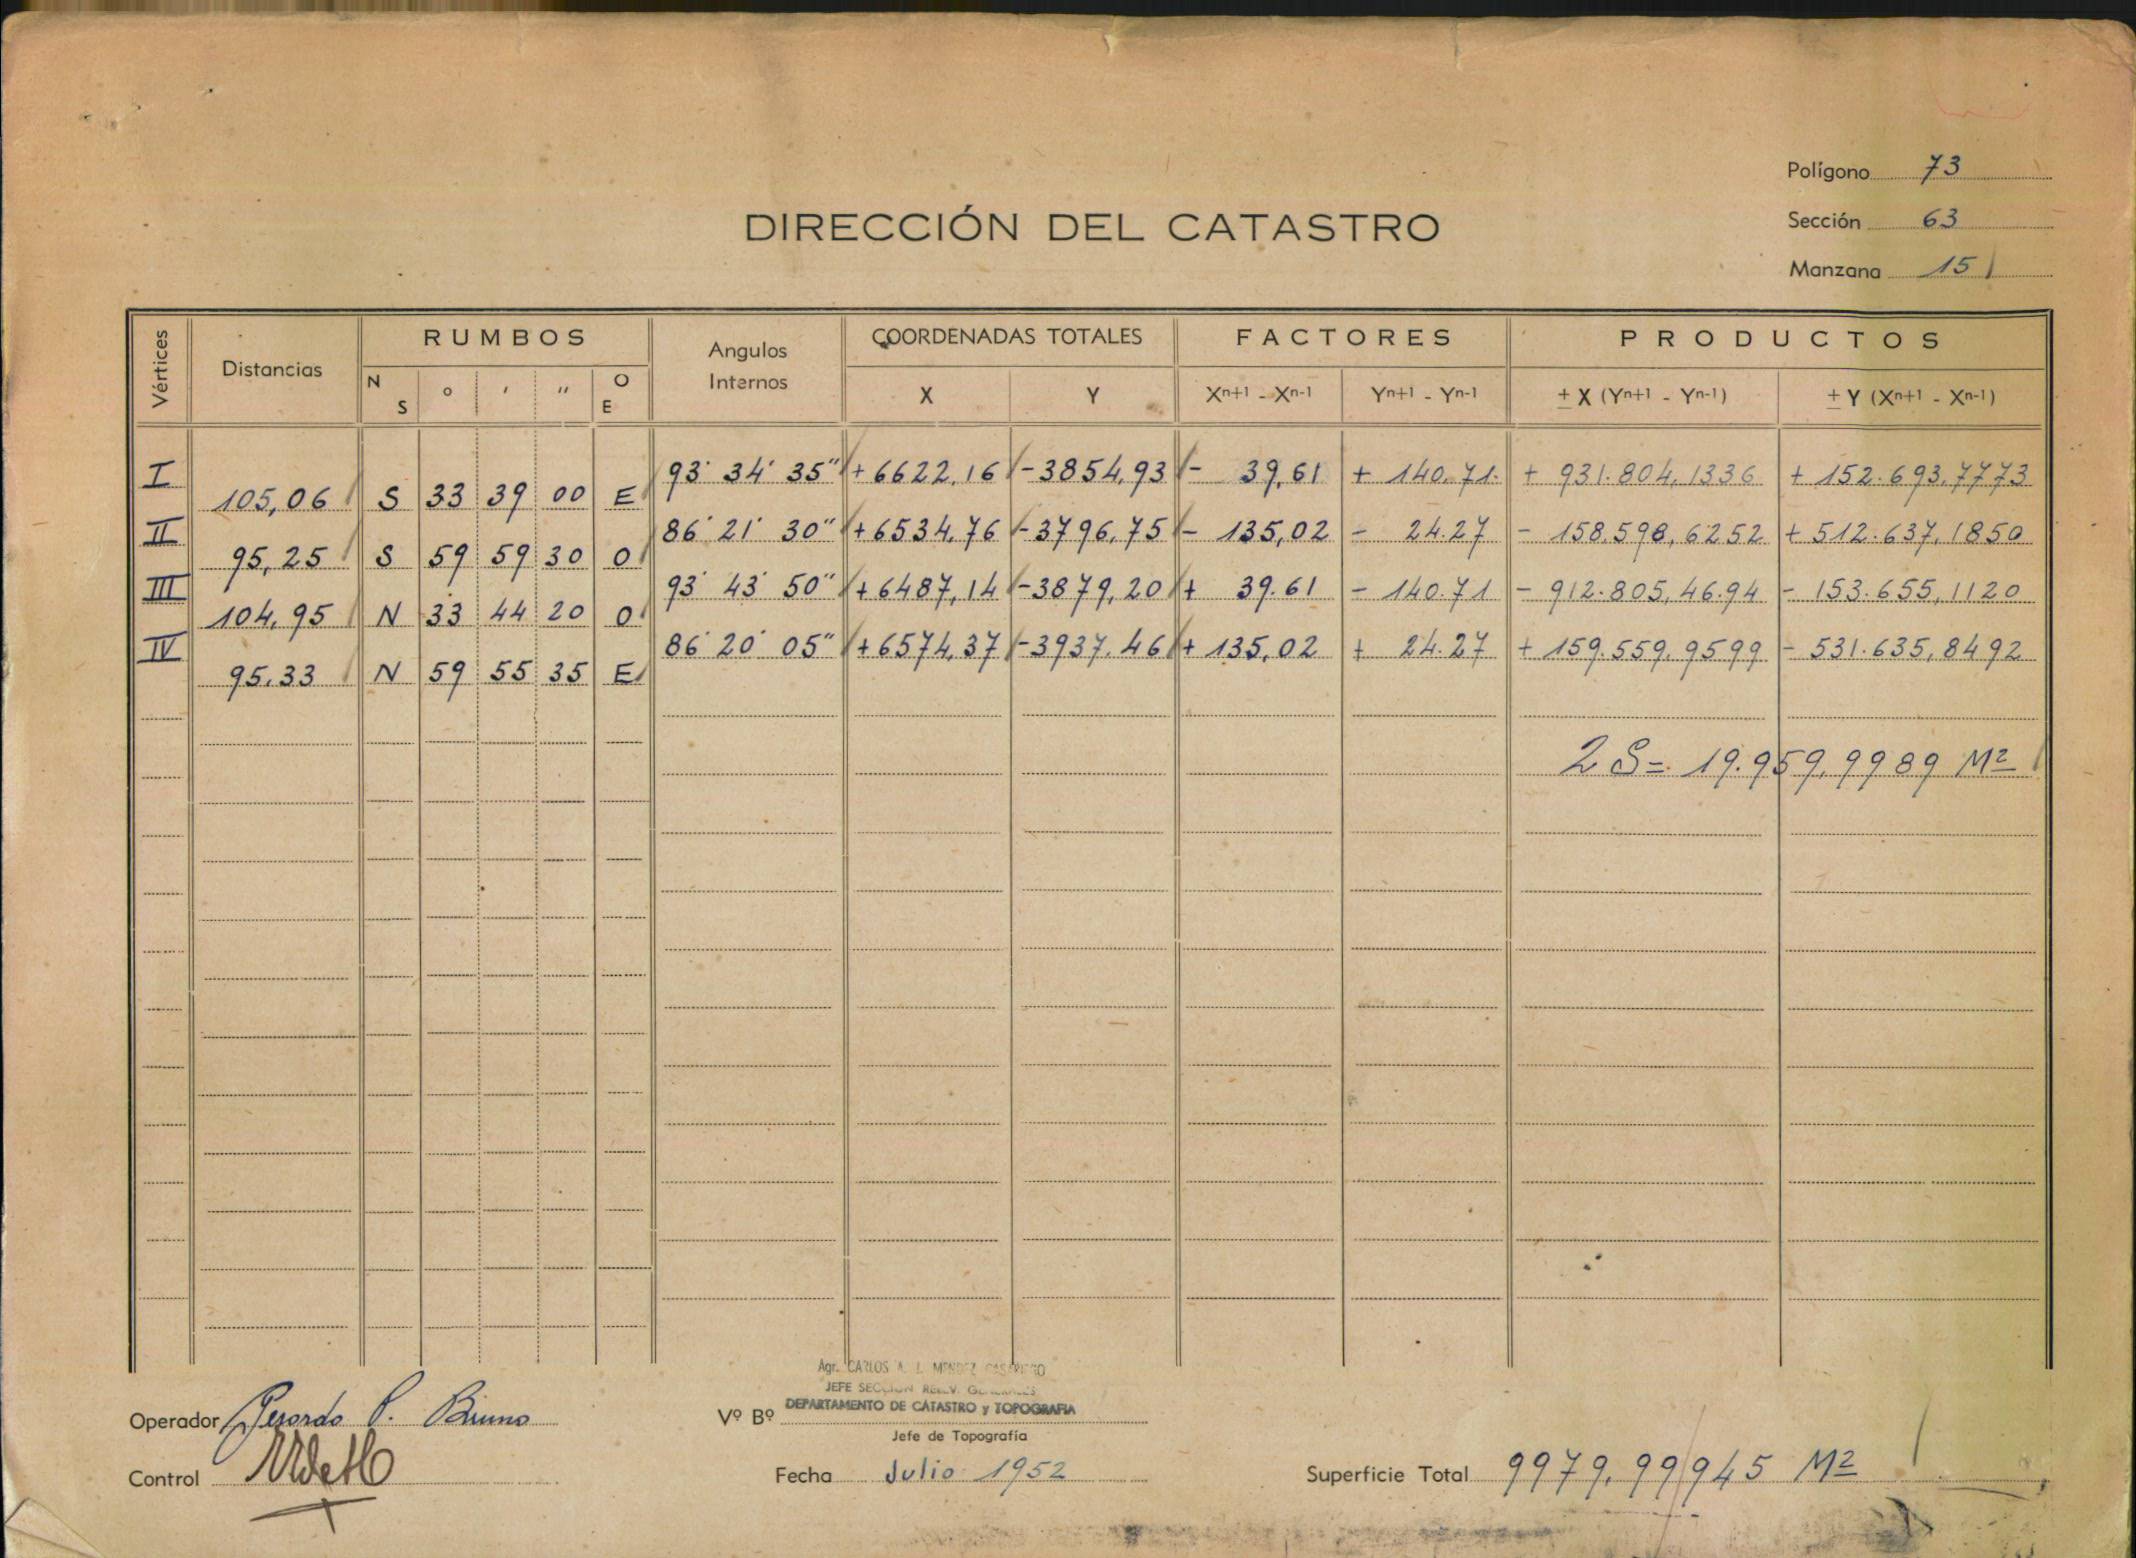 Polígono 73
DIRECCIÓN DEL CATASTRO
Sección 63
Manzana 15
Vértices Distancias RUMBOS Angulos Internos COORDENADAS TOTALES FACTORES PRODUCTOS
N S ° ' " O E X Y Xn+1 - Xn-1 Yn+1 - Yn-1 ± X (Yn+1 - Yn-1) ± Y (Xn+1 - Xn-1)
I 93° 34' 35" +6622,16 -3854,93 - 39,61 + 140.71. + 931.804,1336 + 152.693,7773
105,06 S 33 39 00 E
II 86° 21' 30" +6534,76 -3796,75 - 135,02 - 24.27 - 158.598,6252 + 512.637,1850
95,25 S 59 59 30 O
III 93° 43' 50" +6487,14 -3879,20 + 39.61 - 140.71 - 912.805,46.94 - 153.655,1120
104,95 N 33 44 20 O
IV 86° 20' 05" +6574,37 -3937.46 + 135,02 + 24.27 + 159.559,9599 - 531.635,8492
95.33 N 59 55 35 E
2 S = 19.959,9989 M2
Agr. CARLOS A. L. MENDEZ CASARIEGO
JEFE SECCION RELEV. GENERALES
DEPARTAMENTO DE CATASTRO y TOPOGRAFIA
Operador P. Bruno Vº Bº
Jefe de Topografía
Control Fecha Julio 1952 Superficie Total 9979,99945 M2